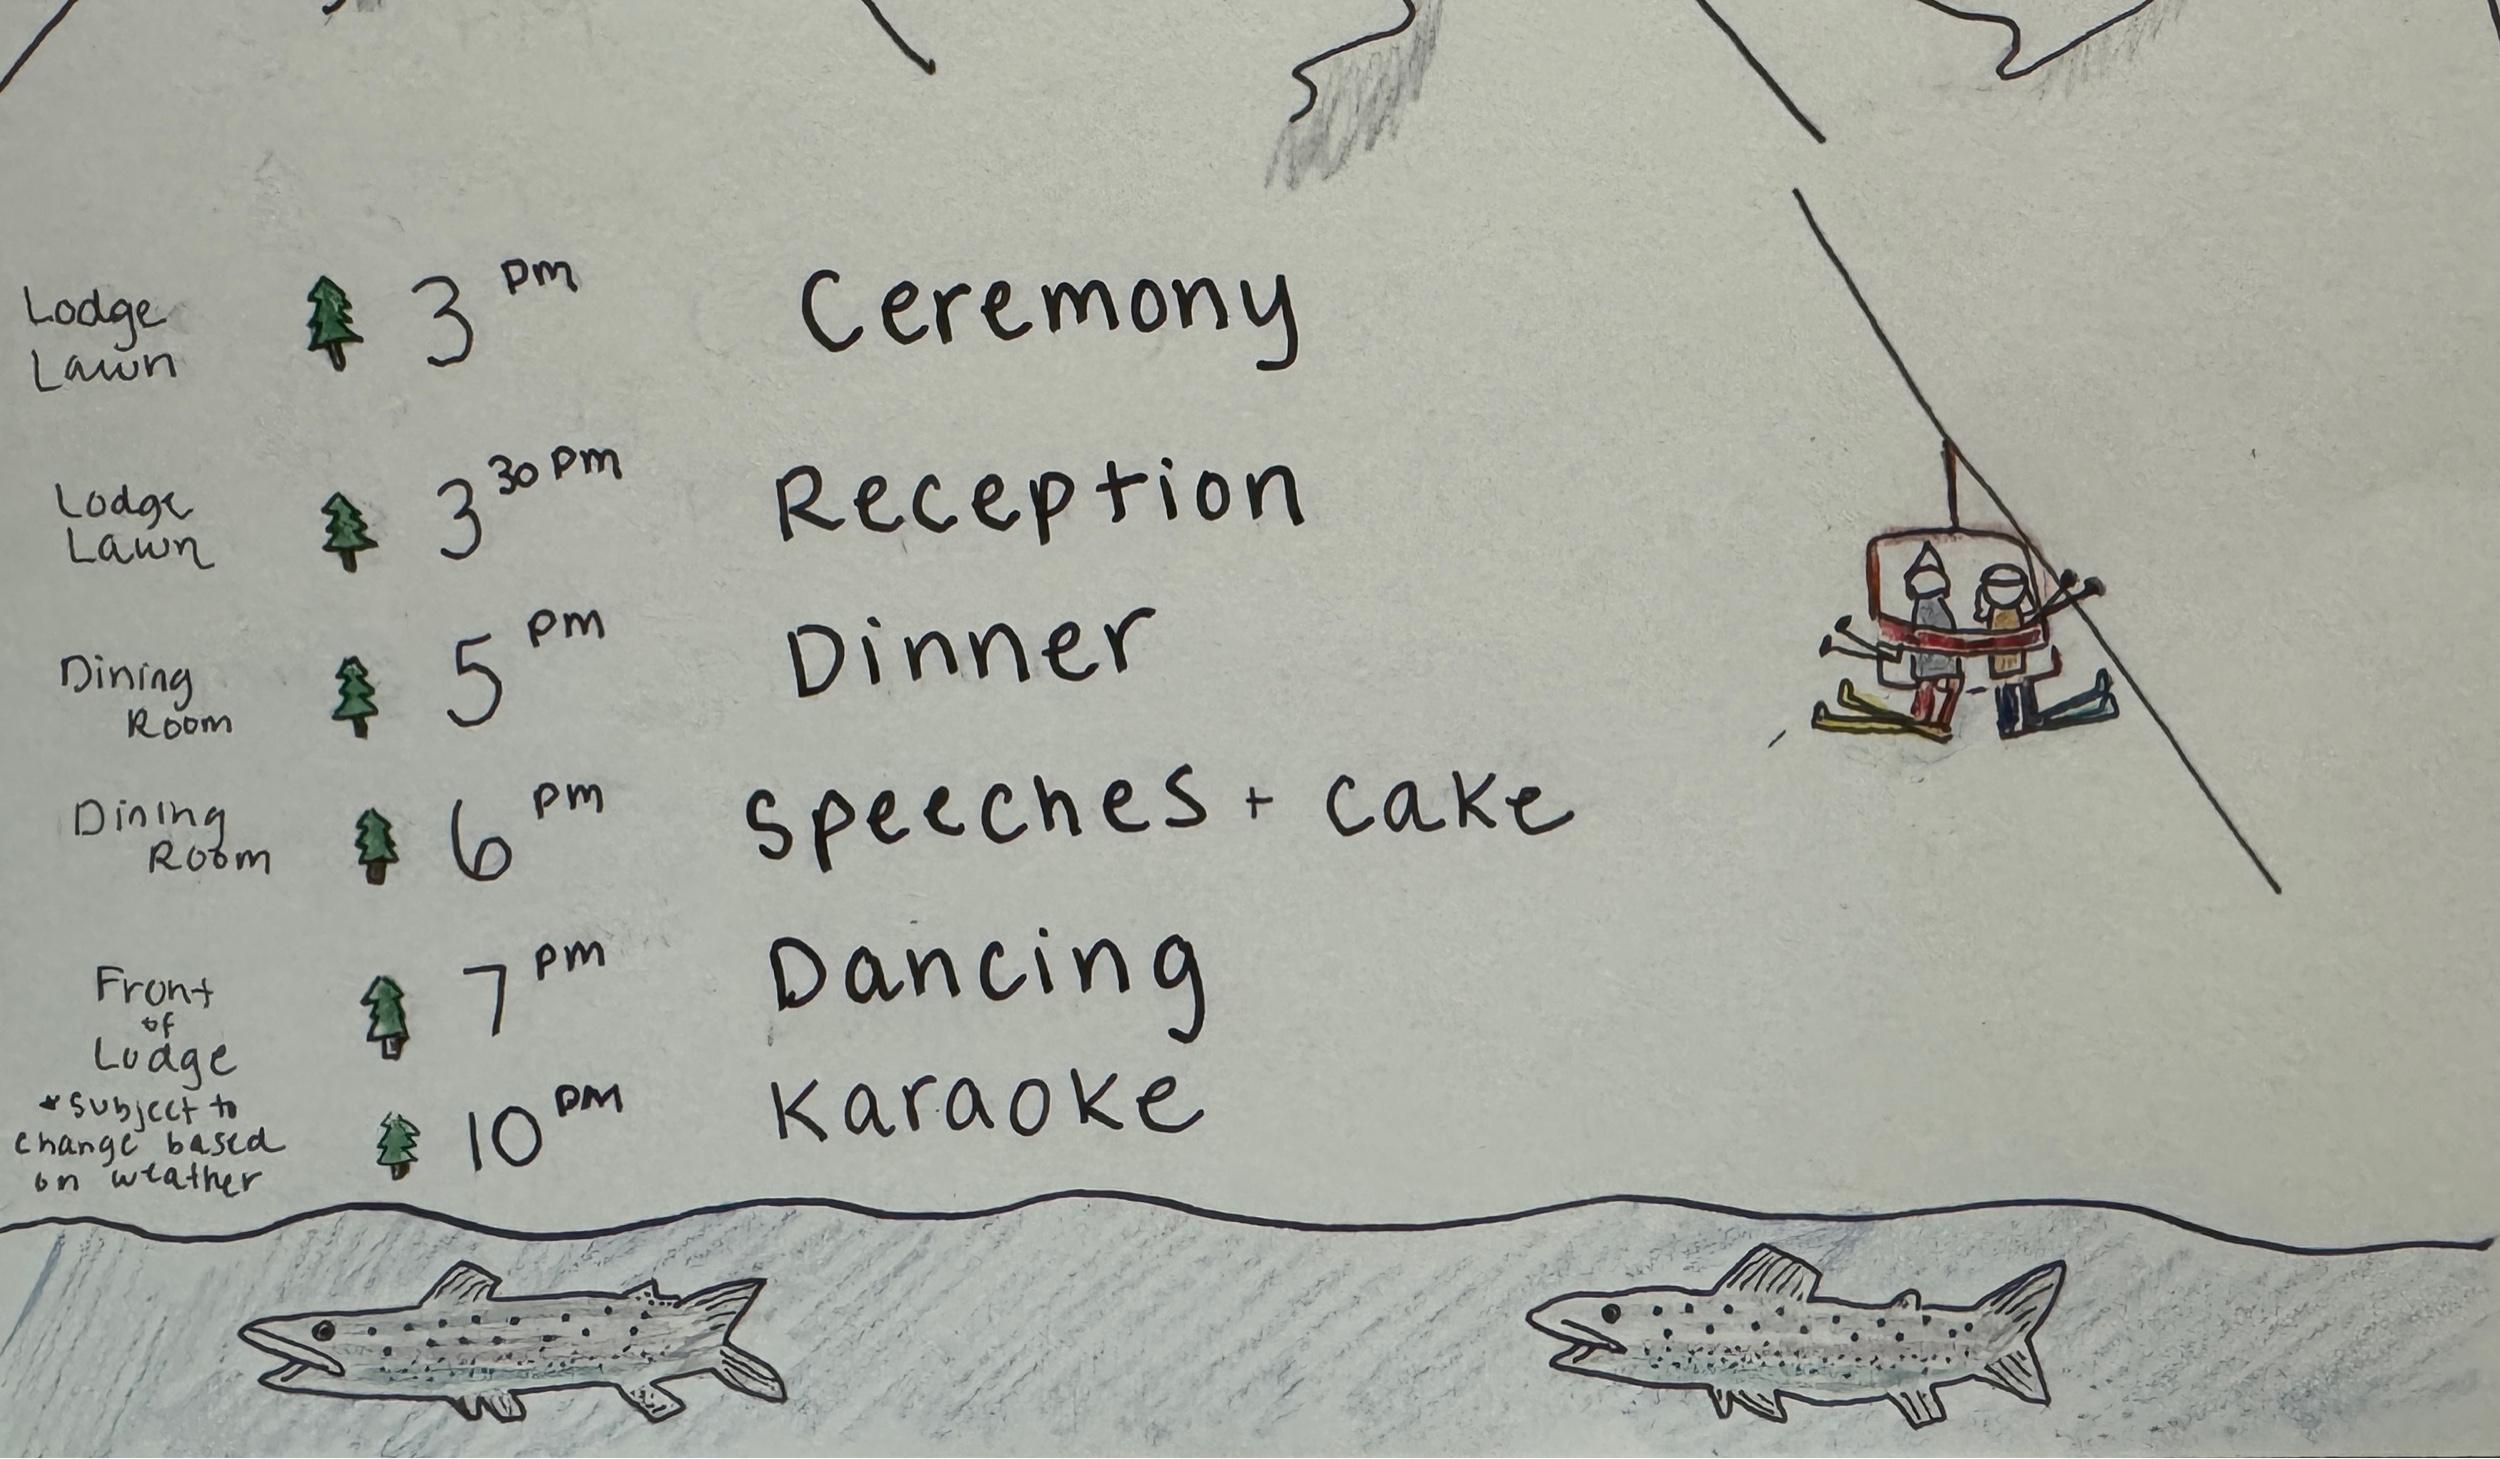 Lodge Lawn 3 pm Ceremony
Lodge Lawn 3 30 pm Reception
Dining Room 5 pm Dinner
Dining Room 6 pm Speeches + Cake
Front of Lodge 7 pm Dancing
*subject to change based on weather 10 pm Karaoke